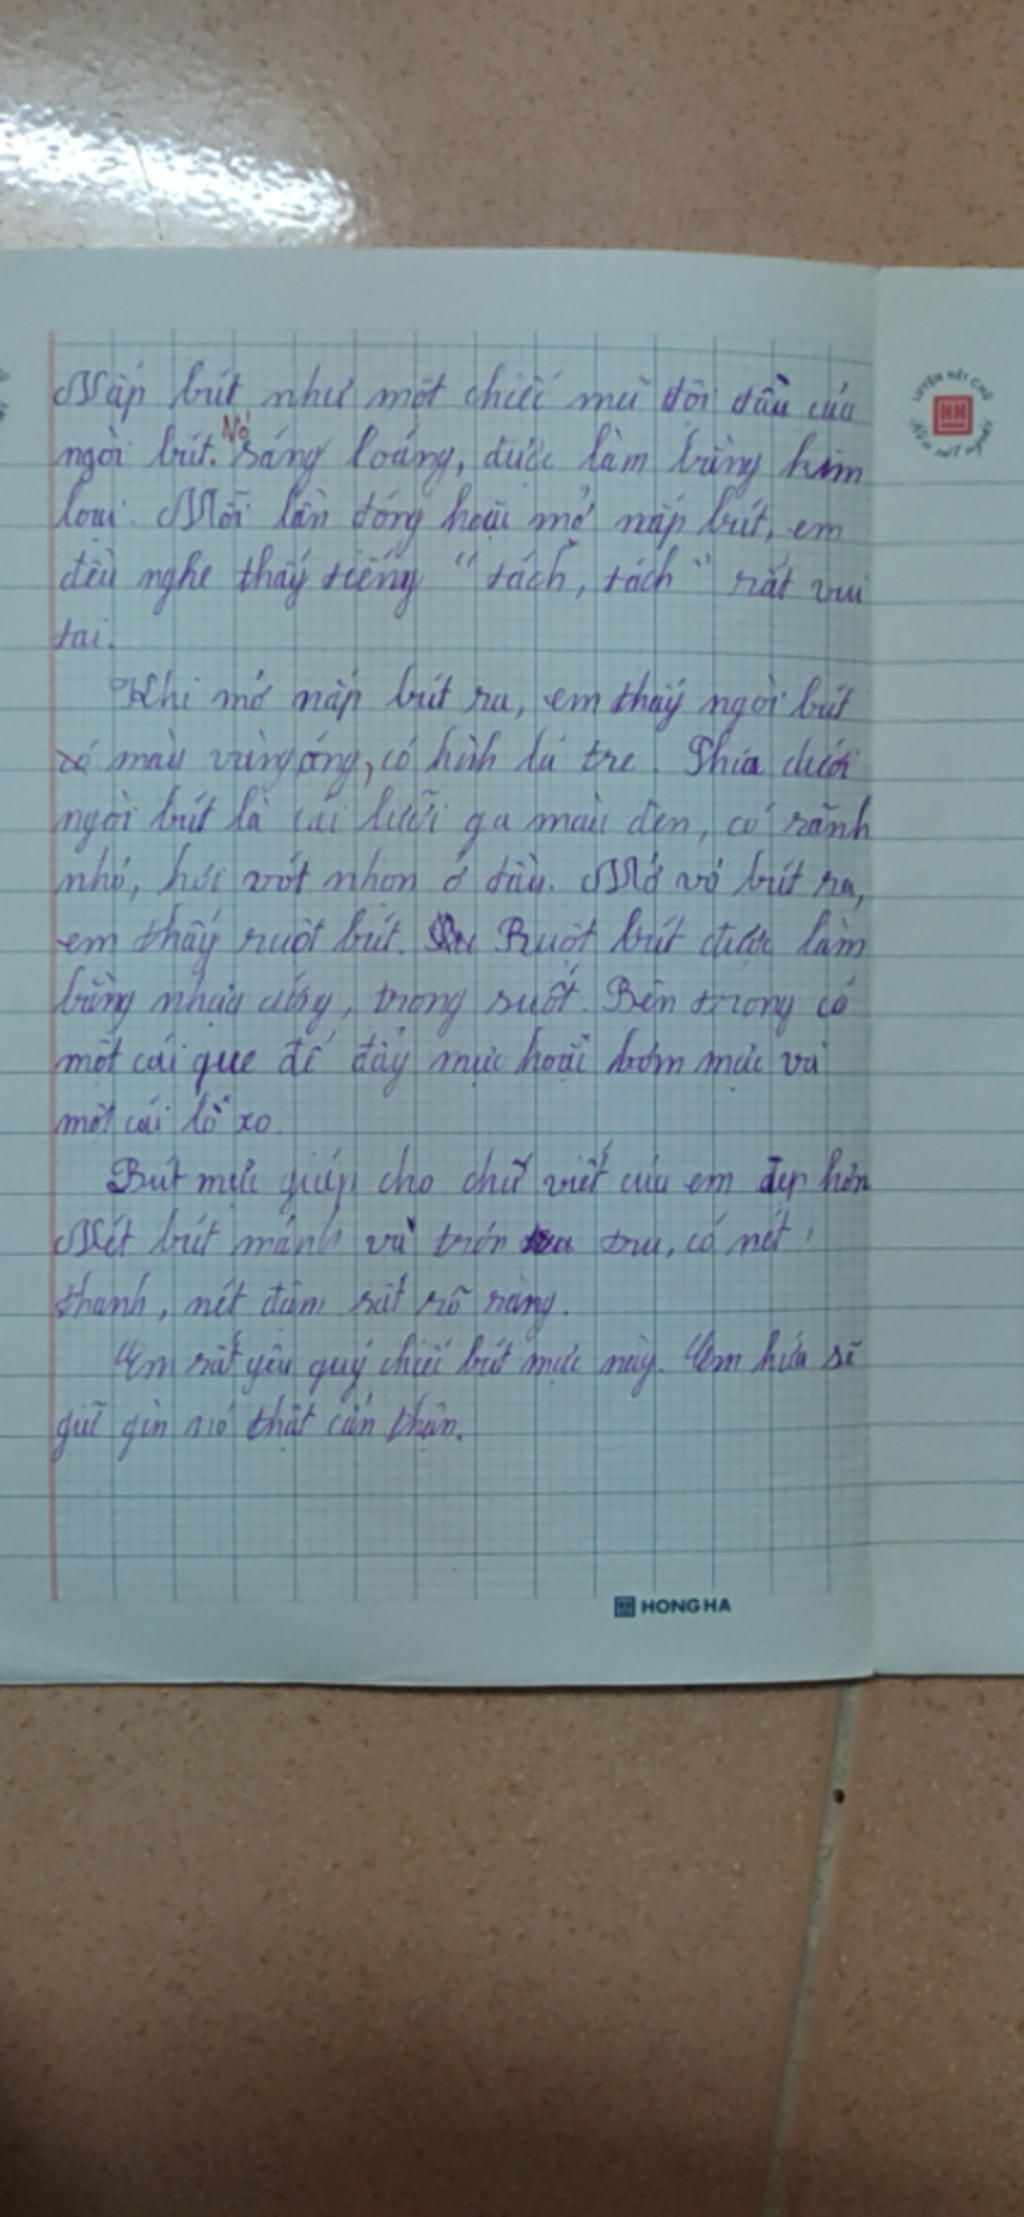 Nắp bút như một chiếc mũ đội đầu của
ngòi bút. Nó sáng loáng, được làm bằng kim
loại. Mỗi lần đóng hoặc mở nắp bút, em
đều nghe thấy tiếng "tách, tách" rất vui
tai.
Khi mở nắp bút ra, em thấy ngòi bút
có màu vàng óng, có hình lá tre. Phía dưới
ngòi bút là cái lưỡi gà màu đen, có rãnh
nhỏ, hơi vót nhọn ở đầu. Mở vỏ bút ra,
em thấy ruột bút. Ruột bút được làm
bằng nhựa cứng, trong suốt. Bên trong có
một cái que để đẩy mực hoặc bơm mực và
một cái lò xo.
Bút mực giúp cho chữ viết của em đẹp hơn
Nét bút mảnh và tròn tru, có nét
thanh, nét đậm rất rõ ràng.
Em rất yêu quý chiếc bút mực này. Em hứa sẽ
giữ gìn nó thật cẩn thận.
HONG HA
LUYỆN NÉT CHỮ
RÈN NẾT NGƯỜI
HH